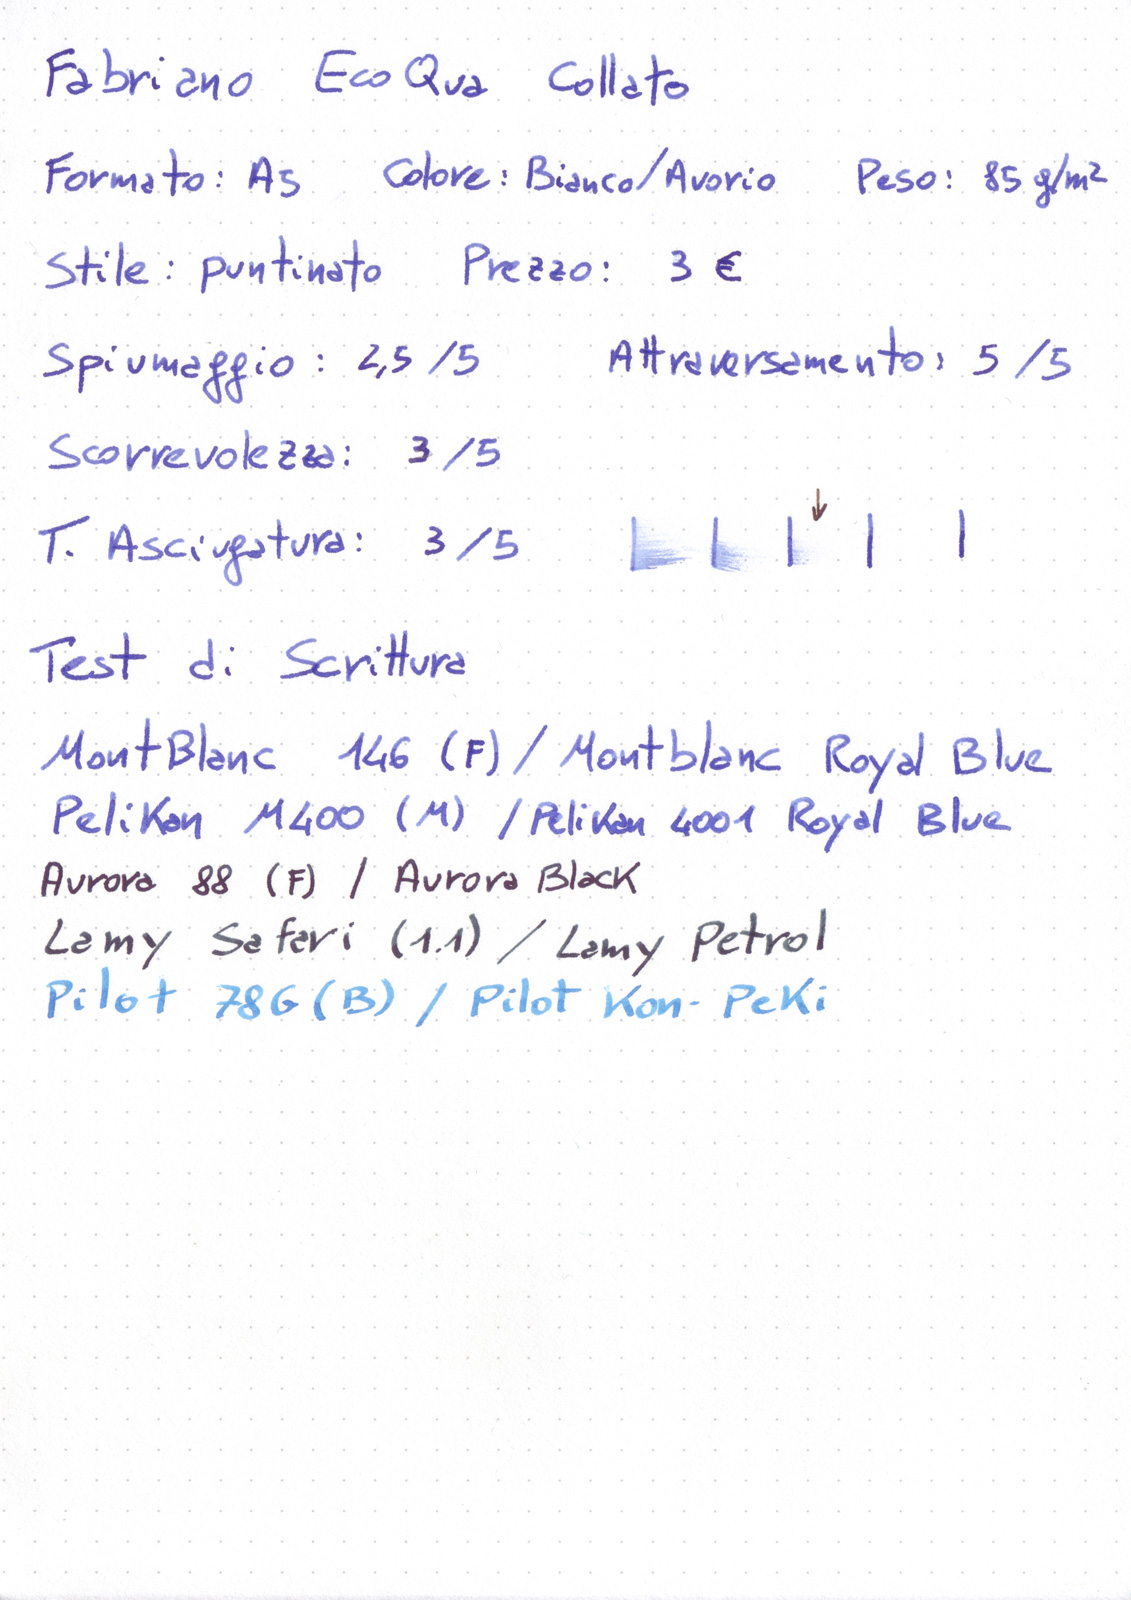 Fabriano EcoQua Collato
Formato: A5 Colore: Bianco/Avorio Peso: 85 g/m²
Stile: puntinato Prezzo: 3 €
Spiumaggio: 2,5 /5 Attraversamento: 5 /5
Scorrevolezza: 3 /5
T. Asciugatura: 3 /5
Test di Scrittura
MontBlanc 146 (F) / Montblanc Royal Blue
Pelikan M400 (M) / Pelikan 4001 Royal Blue
Aurora 88 (F) / Aurora Black
Lamy Safari (1.1) / Lamy Petrol
Pilot 78G (B) / Pilot Kon-Peki